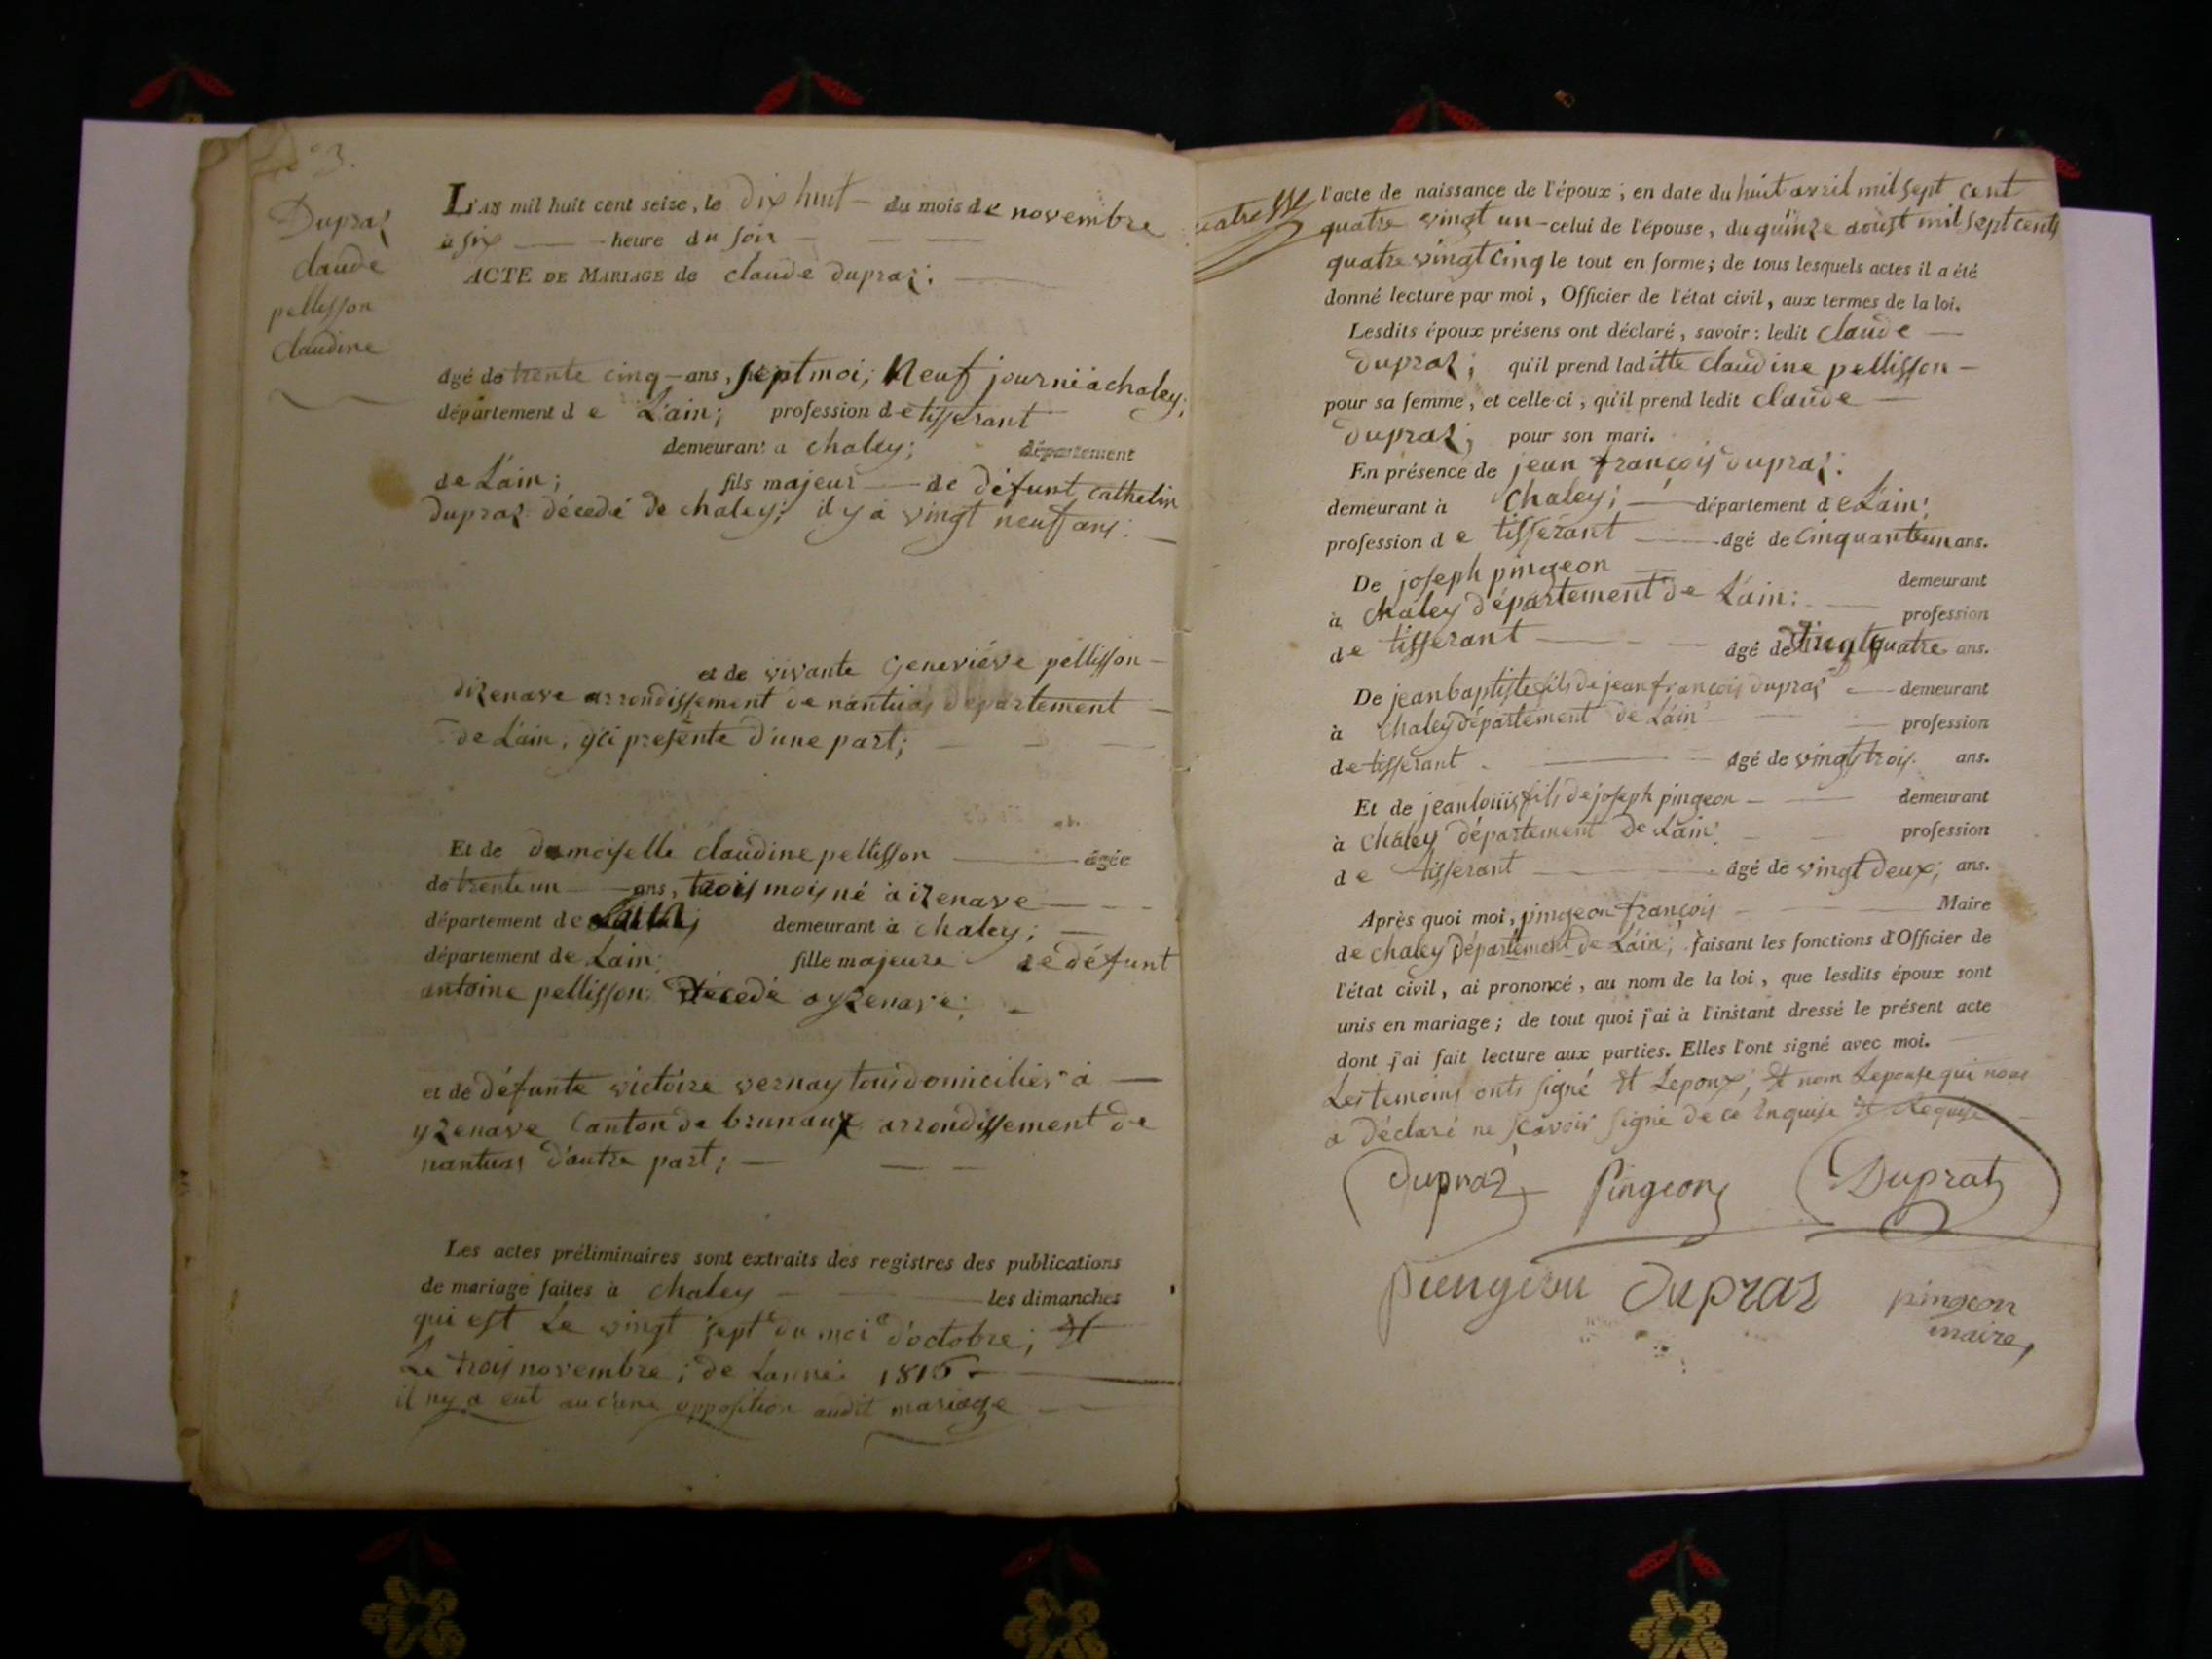 N° 3.
Dupraz
claude
pellisson
Claudine
L'AN mil huit cent seize, le dix huit — du mois de novembre
à six — heure du soir —
ACTE DE MARIAGE de claude dupraz: —
âgé de trente cinq — ans, sept moi; Neuf jour né à chaley;
département de L'ain; profession de tisserant
demeurant a chaley; département
de L'ain; fils majeur — de défunt cathelin
dupraz décedé de chaley; il y a vingt neuf ans: —
et de vivante Geneviéve pellisson —
dizenave arrondissement de nantuas département —
de L'ain, yci présente d'une part; —
Et de demoiselle claudine pellisson — âgée
de trente un — ans, trois mois né à izenave —
département de L'ain; demeurant à chaley; —
département de Lain; fille majeure de défunt
antoine pellisson; décedé a yzenave; —
et de défunte victoire vernay tous domiciliés à —
yzenave Canton de brunaux arrondissement de
nantuas d'autre part; —
Les actes préliminaires sont extraits des registres des publications
de mariage faites à chaley — les dimanches
qui est Le vingt sept du moi d'octobre; et
Le trois novembre; de Lannéé 1816 —
il ny a eut aucune opposition audit mariage —
l'acte de naissance de l'époux; en date du huit avril mil sept cent
quatre vingt un — celui de l'épouse, du quinze aoust mil sept cents
quatre vingt cinq le tout en forme; de tous lesquels actes il a été
donné lecture par moi, Officier de l'état civil, aux termes de la loi.
Lesdits époux présens ont déclaré, savoir: ledit claude —
dupraz; qu'il prend laditte claudine pellisson —
pour sa femme, et celle-ci, qu'il prend ledit claude —
dupraz; pour son mari.
En présence de jean françois dupraz:
demeurant à Chaley; — département de L'ain;
profession de tisserant — âgé de cinquante un ans.
De joseph pingeon — demeurant
à chaley département de L'ain: — profession
de tisserant — âgé de quatre ans.
De jean baptiste fils de jean françois dupraz — demeurant
à Chaley département de L'ain — profession
de tisserant — âgé de vingt trois ans.
Et de jean louis fils de joseph pingeon — demeurant
à Chaley département de L'ain — profession
de tisserant — âgé de vingt deux; ans.
Après quoi moi, pingeon françois — Maire
de chaley département de L'ain; faisant les fonctions d'Officier de
l'état civil, ai prononcé, au nom de la loi, que lesdits époux sont
unis en mariage; de tout quoi j'ai à l'instant dressé le présent acte
dont j'ai fait lecture aux parties. Elles l'ont signé avec moi. —
Les temoins onts signé et Lepoux; et nom Lepouse qui nous
a déclaré ne sçavoir signé de ce Enquise et Requise —
dupraz Pingeon Duprat
pingeon
maire
dupraz